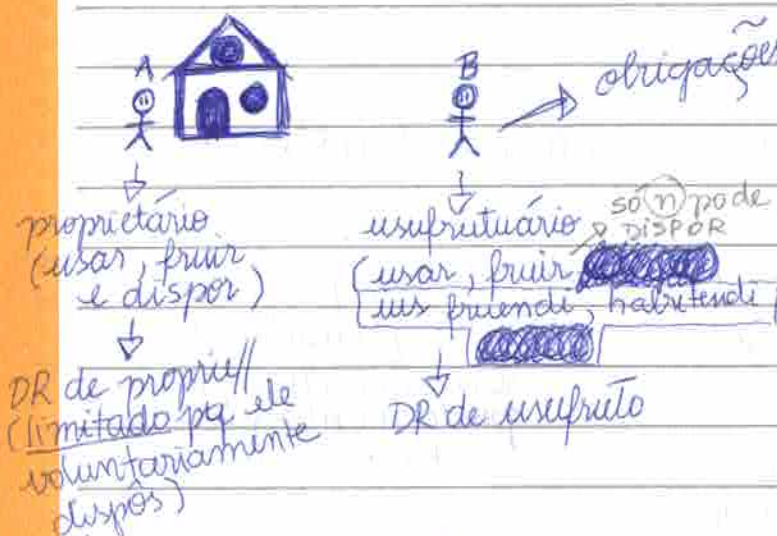 A
proprietário
(usar, fruir
e dispor)
DR de proprie//
(limitado pq ele
voluntariamente
dispôs)
B
obrigações
usufrutuário
só n pode
DISPOR
(usar, fruir
ius fruendi, habitendi
DR de usufruto